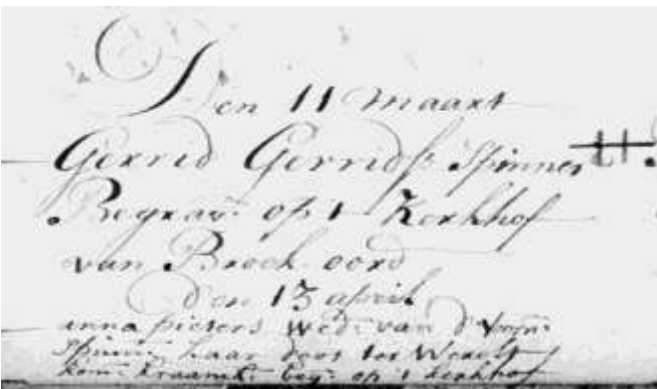 Den 11 maart
Gerrid Gerridsz Spinner
Begrav: op 't Kerkhof
van Broek oord
den 13 april
anna pieters Wed: van d' voorn:
Spinner, haar doot ter Werelt
kom: kraamk: beg: op 't kerkhof